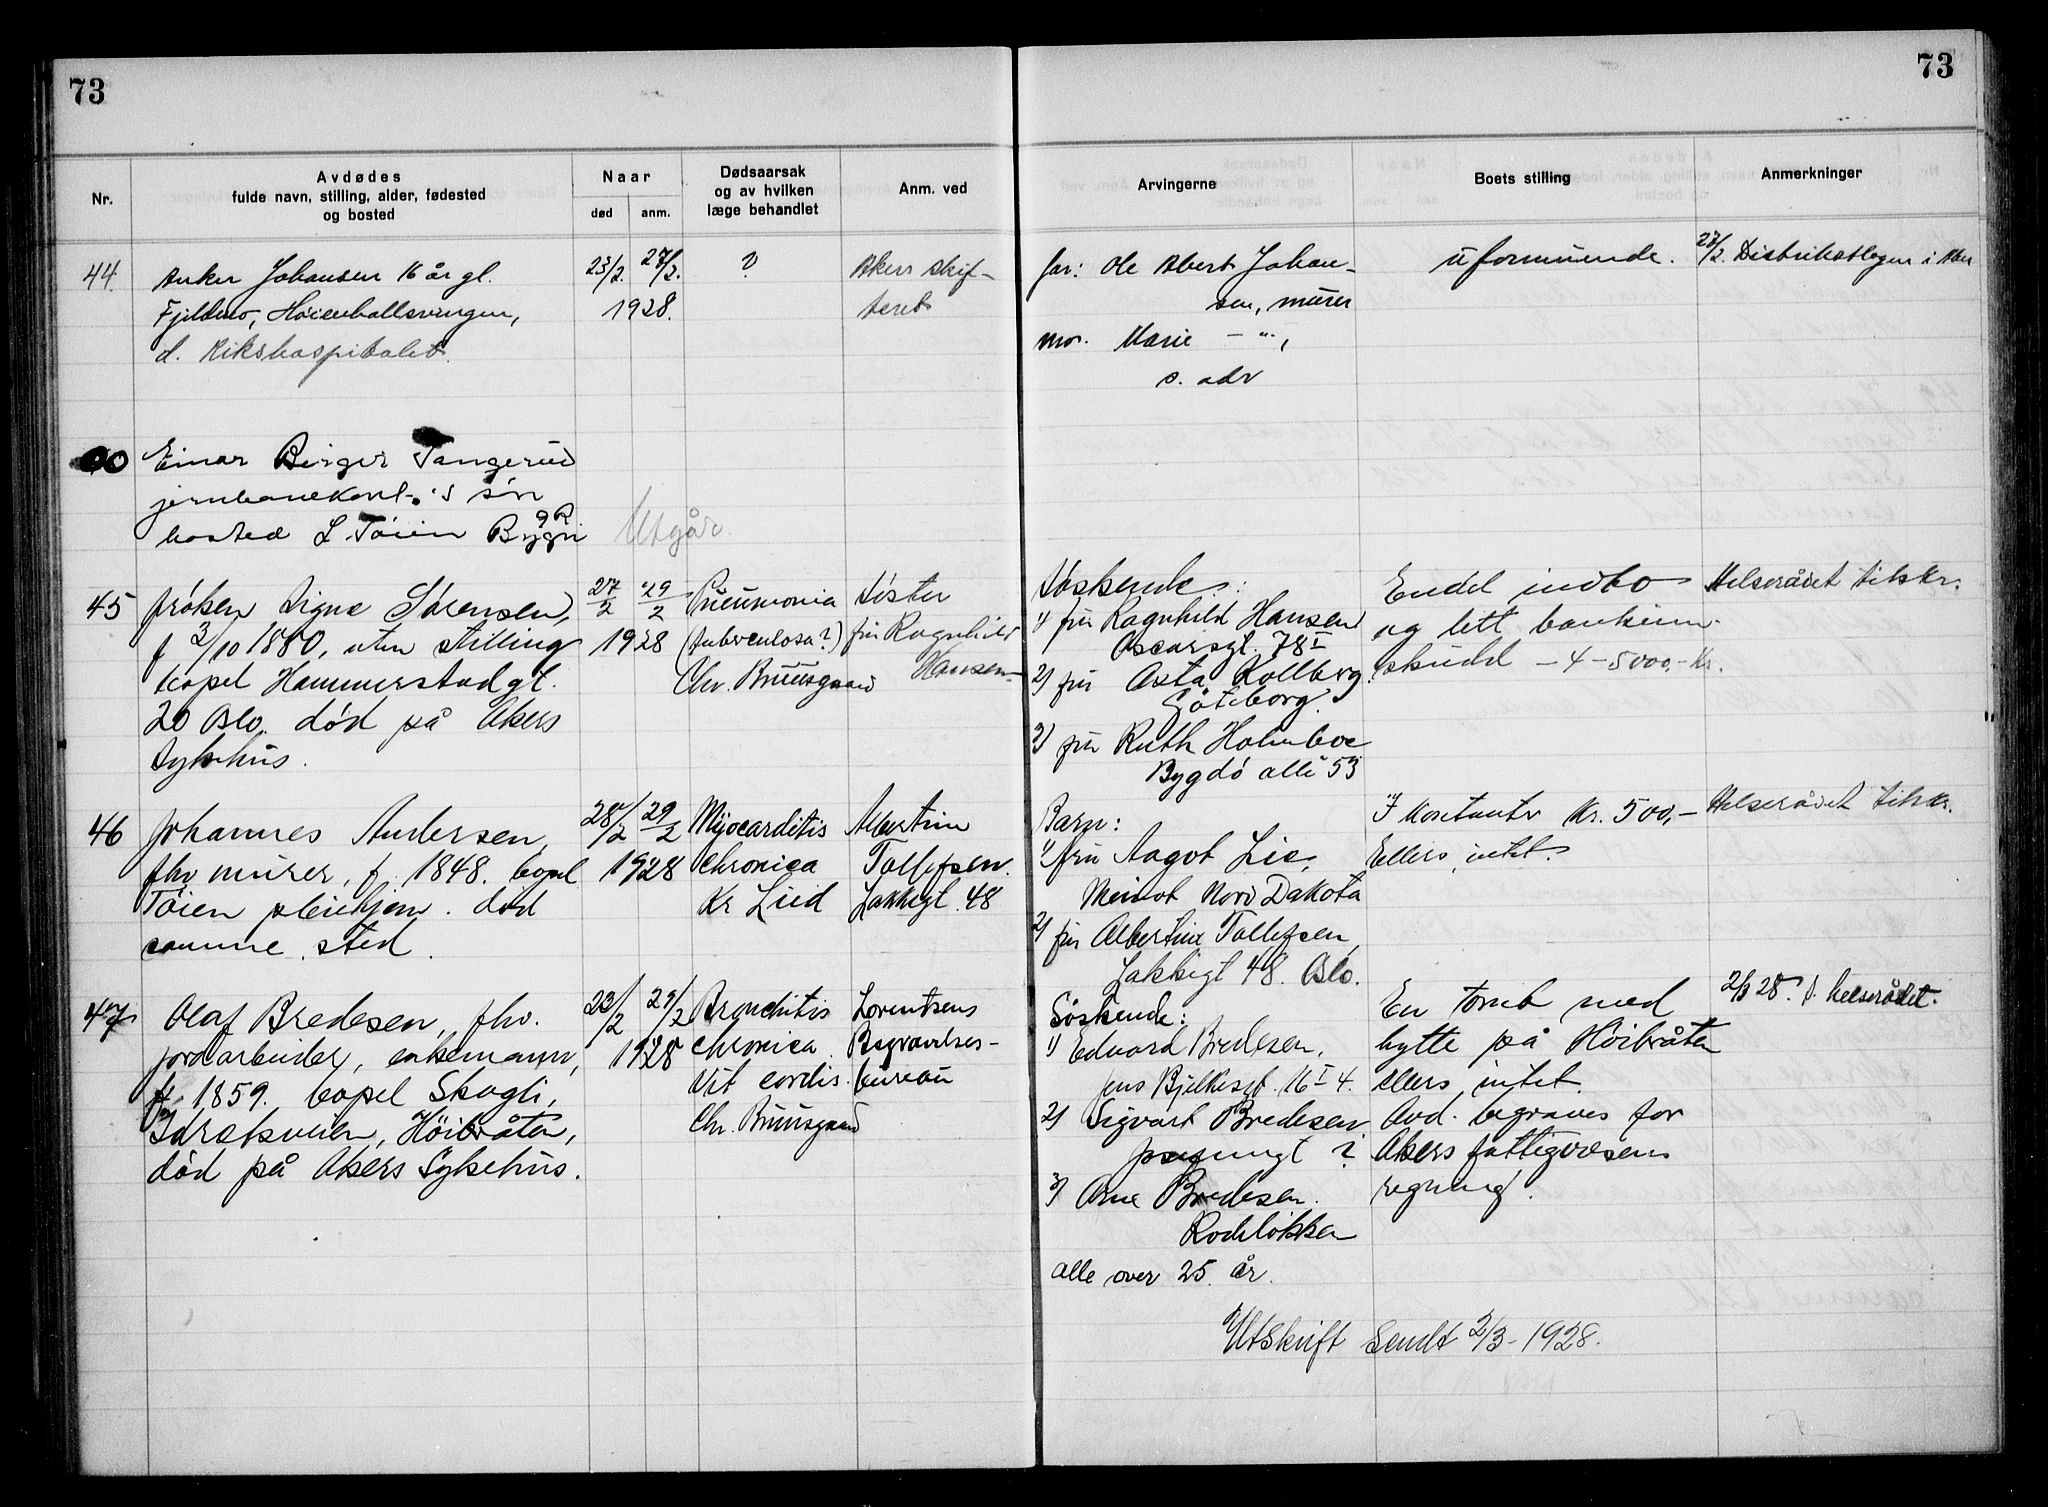 73
73
Nr.
Avdødes
fulde navn, stilling, alder, fødested
og bosted
Naar
død
anm.
Dødsaarsak
og av hvilken
læge behandlet
Anm. ved
Arvingerne
Boets stilling
Anmerkninger
44. Anker Johansen 16 år gl.
Fjeldmo, Høienhallsvingen,
d. Rikshospitalet.
23/2. 27/2.
1928.
?
Akers skif-
teret
far: Ole Abert Johan-
sen, murer
mor. Marie — " — ,
s. adr
uformuende.
27/2. Distriktslegen i Aker
40 Einar Birger Tangerud
jernbanekont-.'s sön
bosted L. Töien Bygn
Utgår.
45 frøken Signe Sørensen,
f 3/10 1880, uten stilling
bopel Hammerstadgt.
20 Oslo. død på Akers
Sykehus.
27/2 29/2
1928
Pneumonia
(tuberculosa?)
Chr. Bruusgaard
Søster
fru Ragnhild
Hansen
Søskende:
1) fru Ragnhild Hansen
Oscarsgt. 78 I
2) fru Asta Kollberg.
Göteborg.
3) fru Ruth Holmboe
Bygdö allé 53
Endel indbo
og litt bankinn-
skudd — 4 – 5000,- Kr.
Helserådet tilskr.
46 Johannes Andersen,
fhv murer, f. 1848. bopel
Töien pleiehjem. død
samme sted.
28/2 29/2
1928
Myocarditis
chronica
Kr Lied
Albertine
Tollefsen.
Lakkegt. 48
Barn:
1) fru Aagot Lie,
Meinot Nord Dakota
2) fru Albertine Tollefsen,
Lakkegt 48. Oslo.
I kontanter Kr. 500,-
Ellers intet.
Helserådet tilskr.
47 Olaf Bredesen, fhv.
jordarbeider, enkemann,
f. 1859. bopel Skogli,
Idrætsveien, Höibråten,
död på Akers Sykehus.
23/2 29/2
1928
Bronchitis
chronica.
Vit cordis.
Chr. Bruusgaard
Lorentsens
Begravelses-
bureau
Søskende:
1) Edvard Bredesen,
Jens Bjelkesgt. 16 I 4.
2) Sigvart Bredesen
?
3) Arne Bredesen.
Rodeløkken
alle over 25. år.
En tomt med
hytte på Höibråten
ellers intet
Avd. begraves for
Akers fattigvæsens
regning.
2/3 28. s. helserådet.
Utskrift Sendt 2/3-1928.